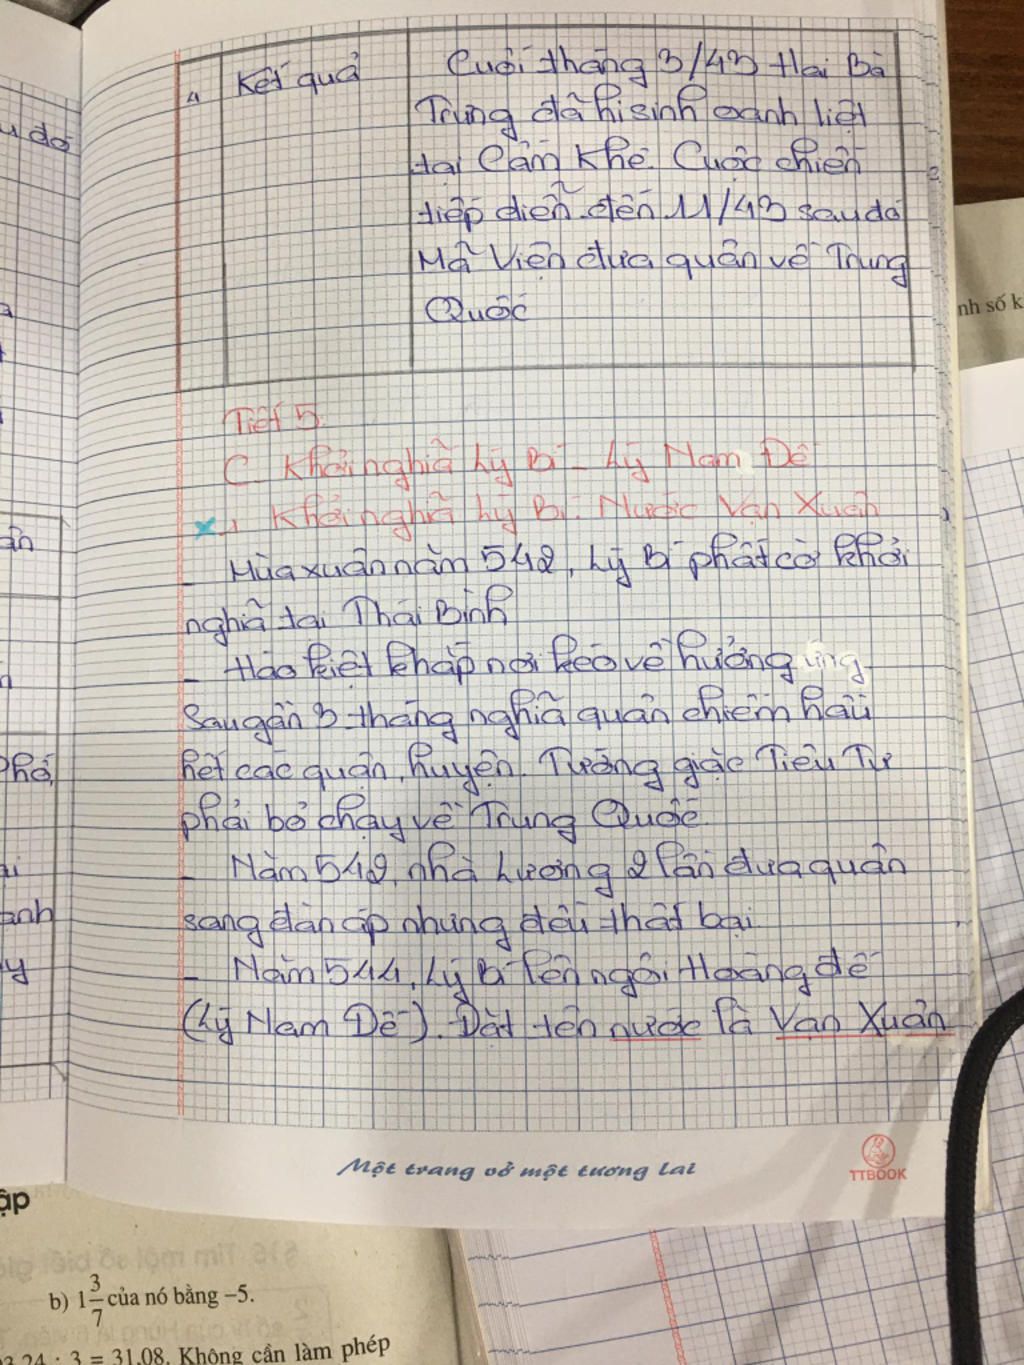 4 Kết quả
Cuối tháng 3/43 Hai Bà
Trưng đã hi sinh oanh liệt
tại Cấm Khê. Cuộc chiến
tiếp diễn đến 11/43 sau đó
Mã Viện đưa quân về Trung
Quốc
Tiết 5
C. Khởi nghĩa Lý Bí - Lý Nam Đế
x 1 Khởi nghĩa Lý Bí. Nước Vạn Xuân
- Mùa xuân năm 542, Lý Bí phất cờ khởi
nghĩa tại Thái Bình
- Hào kiệt khắp nơi kéo về hưởng ứng
Sau gần 3 tháng nghĩa quân chiếm hầu
hết các quận, huyện. Tướng giặc Tiêu Tư
phải bỏ chạy về Trung Quốc.
- Năm 542, nhà Lương 2 lần đưa quân
sang đàn áp nhưng đều thất bại.
- Năm 544, Lý Bí lên ngôi Hoàng đế
(Lý Nam Đế). Đặt tên nước là Vạn Xuân
Một trang vở một tương lai
TTBOOK
u đó
phó,
anh
y
nh số k
ập
b) 1 3/7 của nó bằng –5.
3,24 : 3 = 31,08. Không cần làm phép